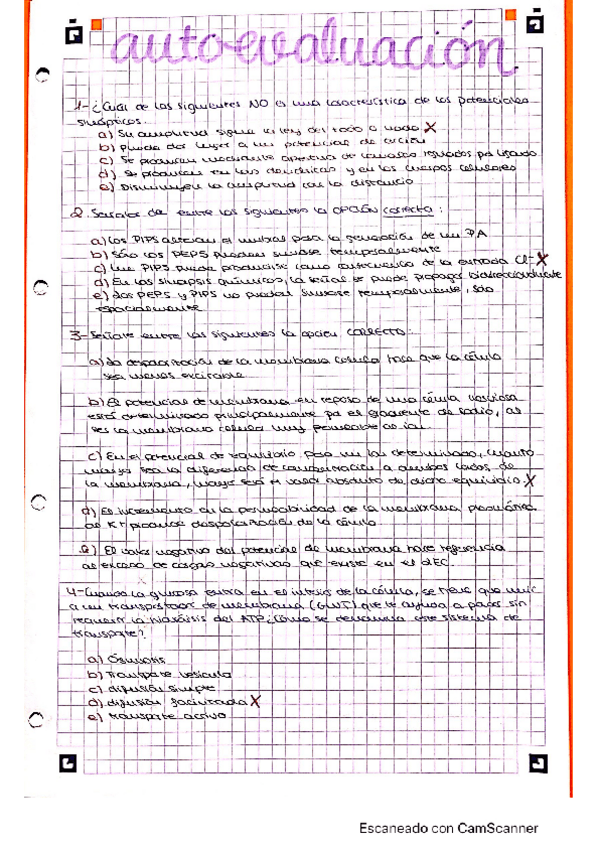 autoevaluación
1- ¿Cuál de los siguientes NO es una característica de los potenciales
sinápticos.
a) Su amplitud sigue la ley del todo o nada X
b) puede dar lugar a un potencial de acción
c) Se producen mediante apertura de canales regulados por ligando
d) Se producen en las dendritas y en los cuerpos celulares
e) Disminuyen la amplitud con la distancia
2. Señalar de entre las siguientes la OPCIÓN correcta:
a) Los PIPS alteran el umbral para la generación de un PA
b) Sólo los PEPS pueden sumarse temporalmente
c) Un PIPS puede producirse como consecuencia de la entrada Cl- X
d) En las sinapsis químicas, la señal se puede propagar bidireccionalmente
e) dos PEPS y PIPS no pueden sumarse temporalmente, sólo
espacialmente
3- Señale entre las siguientes la opción CORRECTA:
a) La despolarización de la membrana celular hace que la célula
sea menos excitable
b) El potencial de membrana en reposo de una célula nerviosa
está determinado principalmente por el gradiente de sodio, al
ser la membrana celular muy permeable al ión
c) En el potencial de equilibrio para un ion determinado, cuanto
mayor sea la diferencia de concentración a ambos lados de
la membrana, mayor será el valor absoluto de dicho equilibrio X
d) El incremento en la permeabilidad de la membrana plasmática
al K+ produce despolarización de la célula
e) El valor negativo del potencial de membrana hace referencia
al exceso de cargas negativas que existe en el LEC
4- Cuando la glucosa entra en el interior de la célula, se tiene que unir
a un transportador de membrana (GLUT) que le ayuda a pasar sin
requerir la hidrólisis del ATP ¿Cómo se denomina este sistema de
transporte?
a) Ósmosis
b) Transporte vesicular
c) difusión simple
d) difusión facilitada X
e) transporte activo
Escaneado con CamScanner